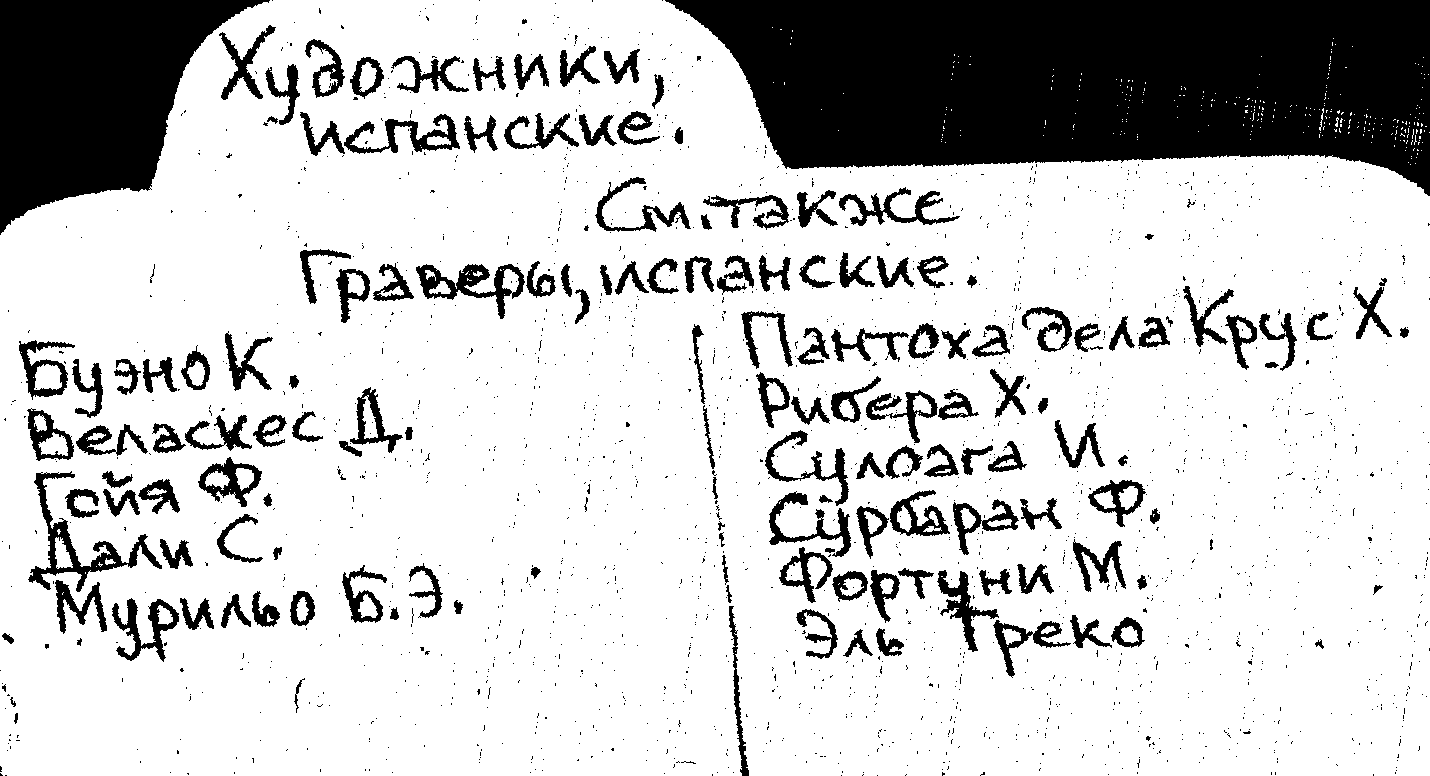 Художники,
испанские.
См. также
Граверы, испанские.
Буэно К.
Веласкес Д.
Гойя Ф.
Дали С.
Мурильо Б.Э.
Пантоха дела Крус Х.
Рибера Х.
Сулоага И.
Сурбаран Ф.
Фортуни М.
Эль Греко